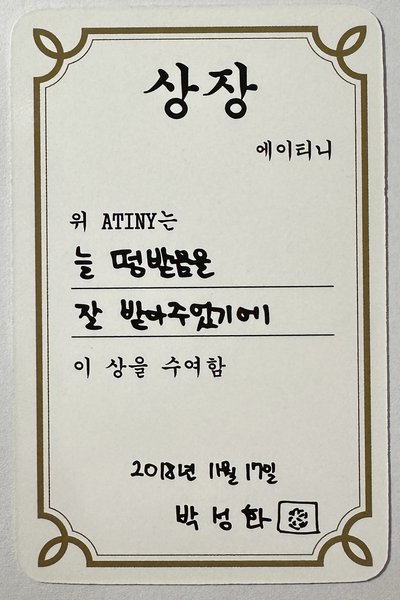 상장
에이티니
위 ATINY는
늘 떵받음을
잘 받아주었기에
이 상을 수여함
2018년 11월 17일
박성화